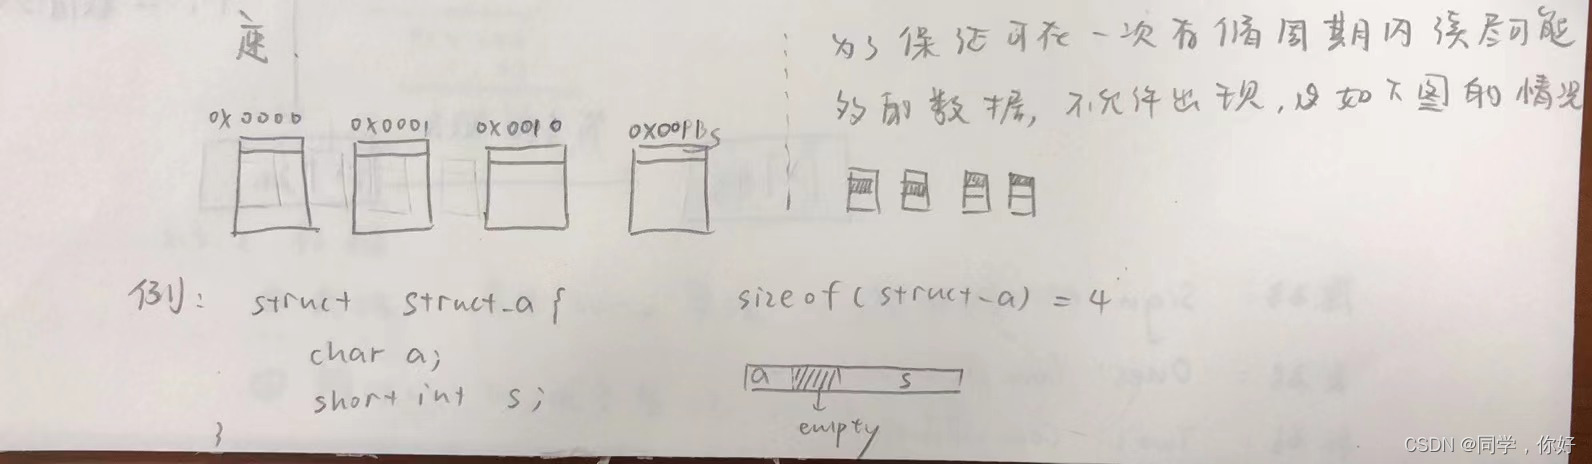 为了保证可在一次存储周期内读尽可能
多的数据，不允许出现，这如下图的情况
0X0000
0X0001
0X0010
例：
struct struct_a {
char a;
short int s;
}
sizeof(struct_a) = 4
a
s
empty
CSDN @同学，你好